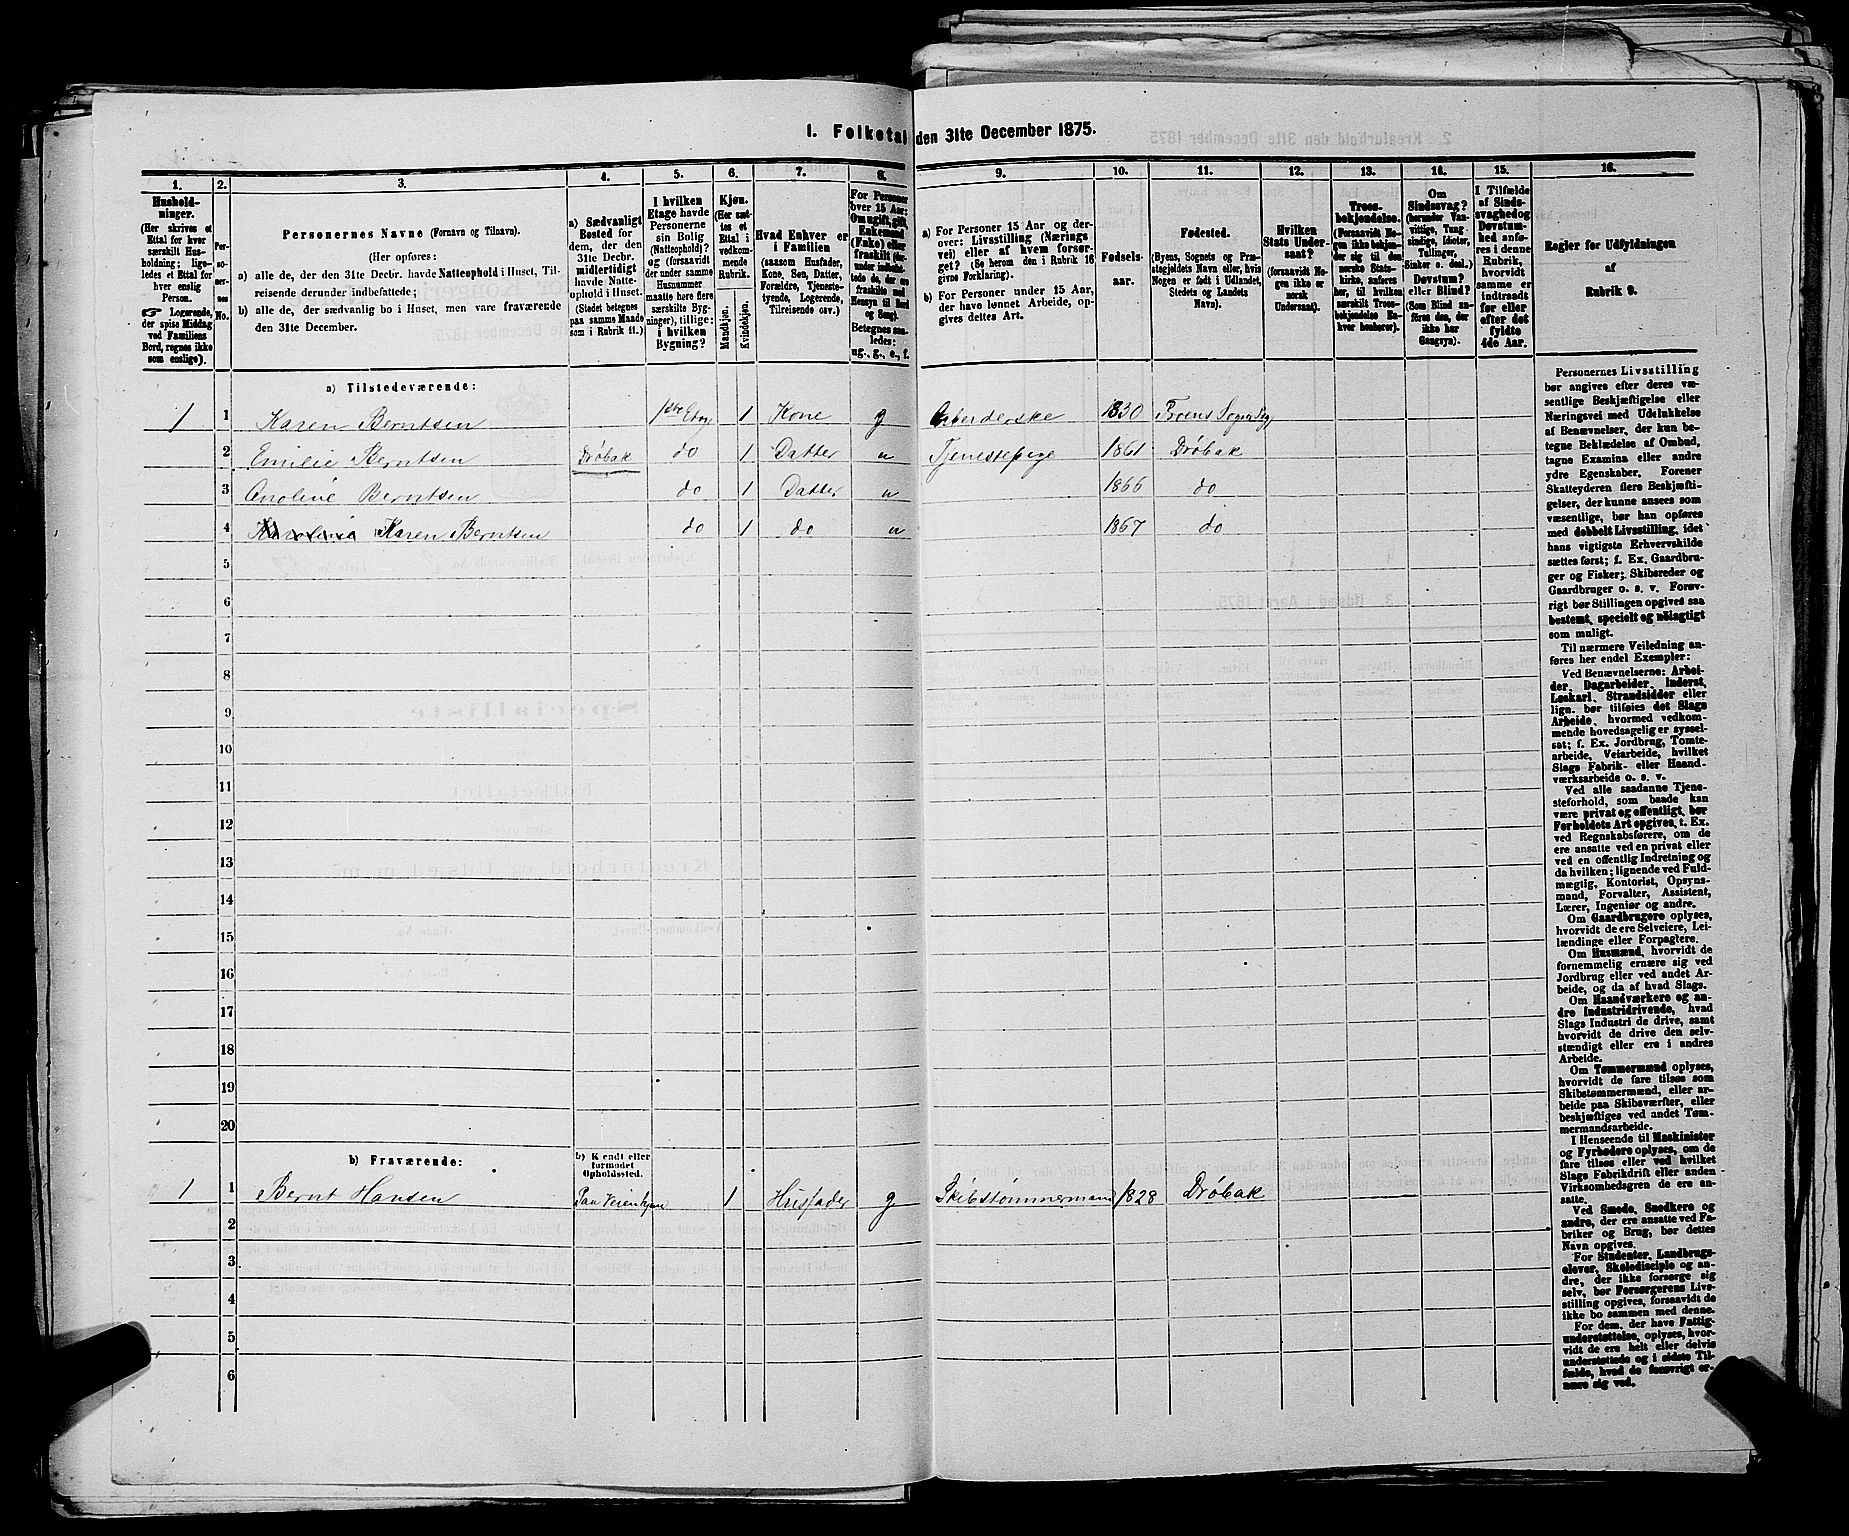 1. Folketal den 31te December 1875.
1. 2. 3. 4. 5. 6. 7. 8. 9. 10. 11. 12. 13. 14. 15. 16.
Hushold-
ninger.
(Her skrives et
Ettal for hver
særskilt Hus-
holdning; lige-
ledes et Ettal for
hver enslig
Person.
☞ Logerende,
der spise Middag
ved Familiens
Bord, regnes ikke
som enslige).
Per-
so-
ner-
nes
No.
Personernes Navne (Fornavn og Tilnavn).
(Her opføres:
a) alle de, der den 31te Decbr. havde Natteophold i Huset, Til-
reisende derunder indbefattede;
b) alle de, der sædvanlig bo i Huset, men vare fraværende
den 31te December.
a) Sædvanligt
Bosted for
dem, der den
31te Decbr.
midlertidigt
havde Natte-
ophold i Huset.
(Stedet betegnes
paa samme Maade
som i Rubrik 11.)
I hvilken
Etage havde
Personerne
sin Bolig
(Natteophold)?
og (forsaavidt
der under samme
Husnummer
maatte høre flere
særskilte Byg-
ninger), tillige:
i hvilken
Bygning?
Kjøn.
(Her sæt-
tes et
Ettal i
vedkom-
mende
Rubrik.
Mandkjøn.
Kvindekjøn.
Hvad Enhver er
i Familien
(saasom Husfader,
Kone, Søn, Datter,
Forældre, Tjeneste-
tyende, Logerende,
Tilreisende osv.)
For Personer
over 15 Aar:
Om ugift, gift,
Enkemand
(Enke) eller
fraskilt
Betegnes saa-
ledes:
ug., g., e., f.
a) For Personer 15 Aar og der-
over: Livsstilling (Nærings
vei) eller af hvem forsør-
get? (Se herom den i Rubrik 16
givne Forklaring).
b) For Personer under 15 Aar,
der have lønnet Arbeide, op-
gives dettes Art.
Fødsels-
aar.
Fødested.
(Byens, Sognets og Præ-
stegjeldets Navn eller, hvis
Nogen er født i Udlandet,
Stedets og Landets
Navn).
Hvilken
Stats Under-
saat?
(forsaavidt No-
gen ikke er
norsk
Undersaat).
Troes-
bekjendelse.
(Forsaavidt No-
gen ikke bekjen-
der sig til den
norske Stats-
kirke, anføres
her, til hvilket
særskilt Tros-
bekjendelse En-
hver henhører).
Om
Sindssvag?
(herunder Van-
vittige, Tung-
sindige, Idioter,
Tullinger,
Sinker o. desl.)
Døvstum?
eller Blind?
(Som Blind an-
føres den, der
ikke har
Gangsyn).
I Tilfælde
af Sinds-
svaghed og
Døvstum-
hed anfø-
res i denne
Rubrik,
hvorvidt
samme er
indtraadt
før eller
efter det
fyldte
4de Aar.
Regler for Udfyldningen
af
Rubrik 9.
a) Tilstedeværende:
1 1 Karen Berntsen 1ste Etag 1 Kone g Arbeiderske 1830
2 Emilie Berntsen Drøbak do 1 Datter u Tjenestepige 1861 Drøbak
3 Anoline Berntsen do 1 Datter u 1866 do
4 Karen Berntsen do 1 do u 1867 do
5
6
7
8
9
10
11
12
13
14
15
16
17
18
19
20
b) Fraværende:
b) Kjendt eller
formodet
Opholdssted.
1 1 Bernt Hansen 1 Husfader g Skibstømmermand 1828 Drøbak
2
3
4
5
6
Personernes Livsstilling
bør angives efter deres væ-
sentlige Beskjæftigelse eller
Næringsvei med Udelukkelse
af Benævnelser, der kun be-
tegne Beklædelse af Ombud,
tagne Examina eller andre
ydre Egenskaber. Forener
Skatteyderen flere Beskjæfti-
gelser, der kunne ansees som
væsentlige, bør han opføres
med dobbelt Livsstilling, idet
hans vigtigste Erhvervskilde
sættes først; f. Ex. Gaardbru-
ger og Fisker; Skibsreder og
Gaardbruger o. s. v. Forøv-
rigt bør Stillingen opgives saa
bestemt, specielt og nøiagtigt
som muligt.
Til nærmere Veiledning an-
føres her endel Exempler:
Ved Benævnelserne: Arbei-
der, Dagarbeider, Inderst,
Løskarl, Strandsidder eller
lign. bør tilføies det Slags
Arbeide, hvormed vedkom-
mende hovedsagelig er syssel-
sat; f. Ex. Jordbrug, Tomte-
arbeide, Veiarbeide, hvilket
Slags Fabrik- eller Haand-
værksarbeide o. s. v.
Ved alle saadanne Tjene-
steforhold, som baade kan
være privat og offentligt, bør
Forholdets Art opgives, t. Ex.
ved Regnskabsførere, om de
ere ansatte ved en privat eller
ved en offentlig Indretning og
da hvilken; lignende ved Fuld-
mægtig, Kontorist, Opsyns-
mand, Forvalter, Assistent,
Lærer, Ingeniør og andre.
Om Gaardbrugere oplyses,
hvorvidt de ere Selveiere, Lei-
lændinge eller Forpagtere.
Om Husmænd, hvorvidt de
fornemmelig ernære sig ved
Jordbrug eller ved andet Ar-
beide, og da af hvad Slags.
Om Haandværkere og an-
dre Industridrivende, hvad
Slags Industri de drive, samt
hvorvidt de drive den selv-
stændigt eller ere i andres
Arbeide.
Om Tømmermænd oplyses,
hvorvidt de fare tilsøs som
Skibstømmermænd, eller ar-
beide paa Skibsværfter, eller
beskjæftiges ved andet Tøm-
mermandsarbeide.
I Henseende til Maskinister
og Fyrbødere oplyses, om de
fare tilsøs eller ved hvilket
Slags Fabrikdrift eller anden
Virksomhedsgren de ere an-
satte.
Ved Smede, Snedkere og
andre, der ere ansatte ved Fa-
briker og Brug, bør dettes
Navn opgives.
For Studenter, Landbrugs-
elever, Skoledisciple og an-
dre, der ikke forsørge sig
selv, bør Forsørgerens Livs-
stilling opgives, forsaavidt de
ikke bo sammen med denne.
For dem, der have Fattig-
understøttelse, oplyses, hvor-
vidt de ere helt eller delvis
understøttede og i sidste Til-
fælde, hvad de forøvrigt er-
nære sig ved.